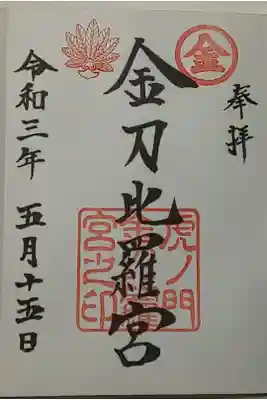 奉拝
金
金刀比羅宮
虎ノ門
金刀比羅
宮之印
令和三年 五月十五日